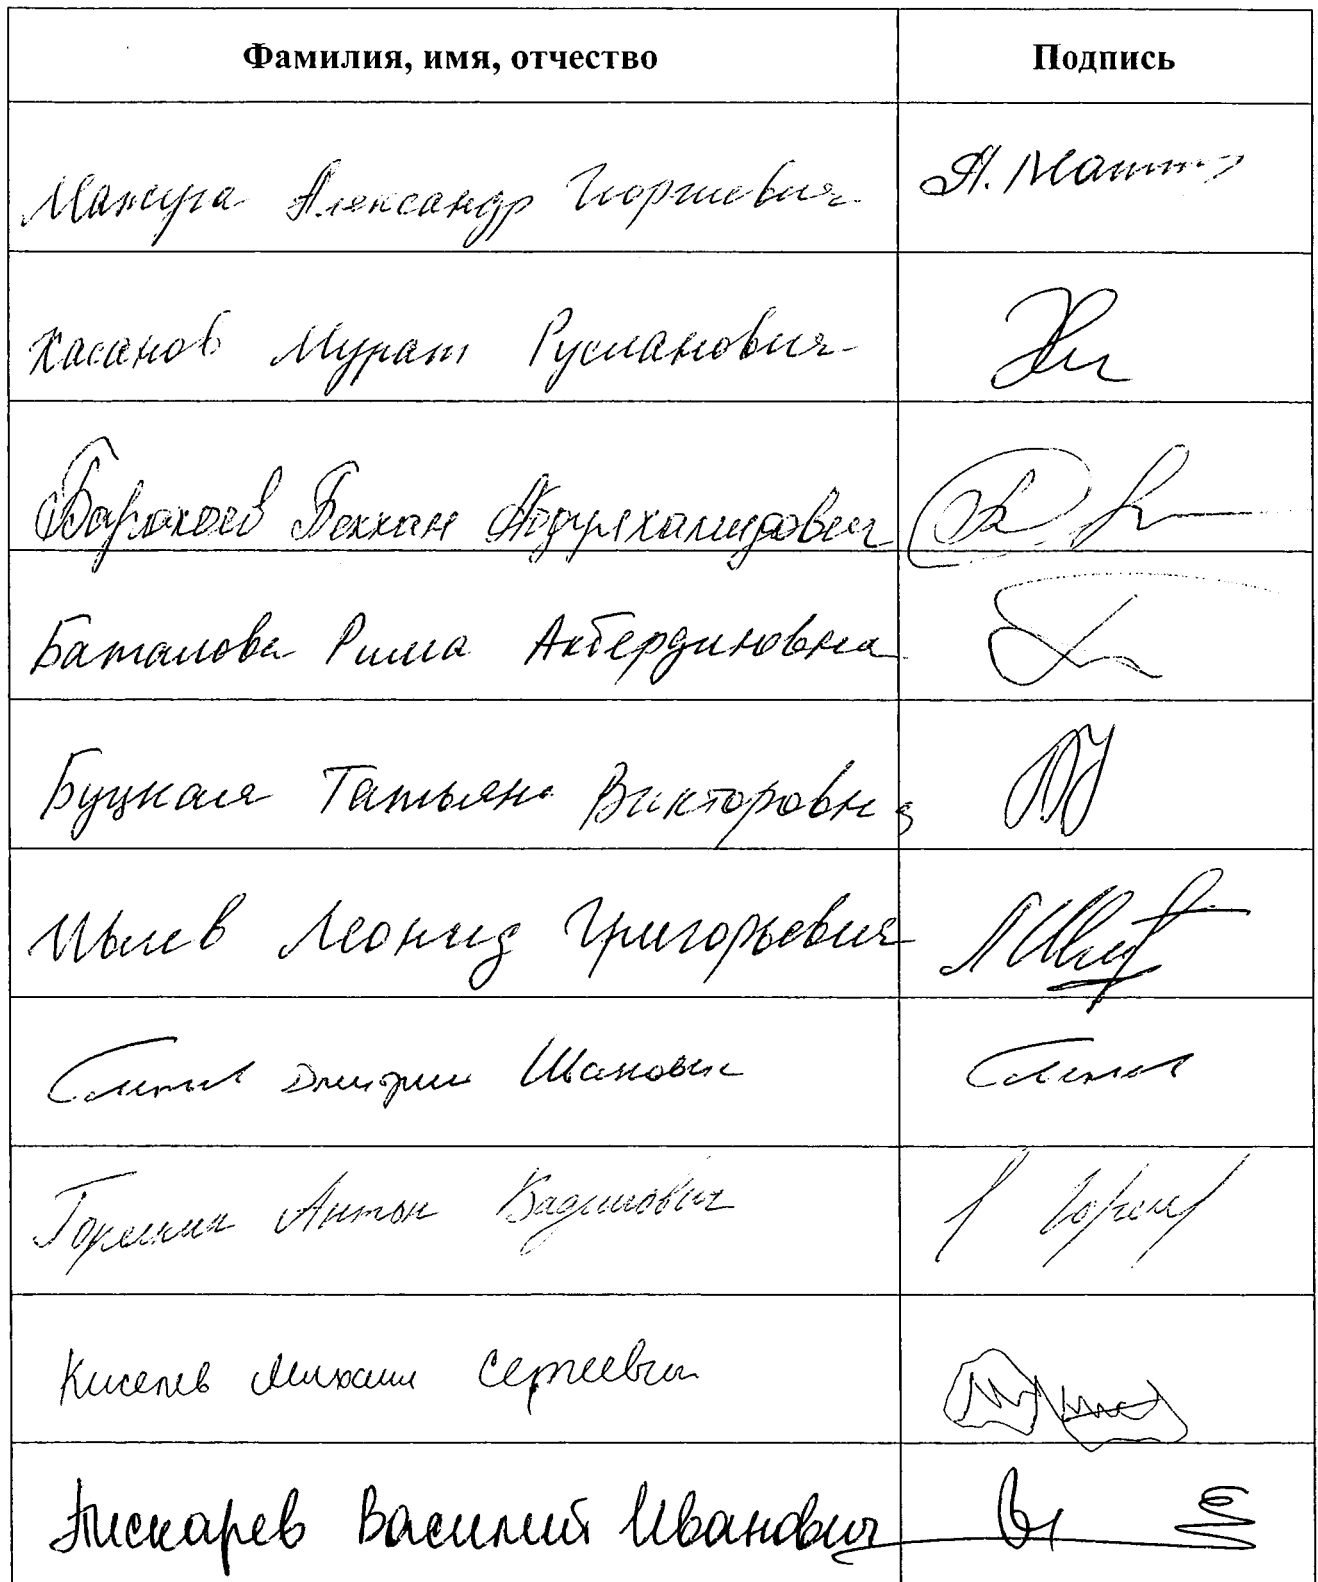 Фамилия, имя, отчество Подпись
Мажуга Александр Георгиевич А. Мажуга
Хасанов Мурат Русланович
Барахоев Бекхан Абдулхамидович
Баталова Рима Акбердиновна
Буцкая Татьяна Викторовна
Ивлев Леонид Григорьевич
Дмитрий
Горелкин Антон Вадимович
Киселев Михаил Сергеевич
Пискарев Василий Иванович